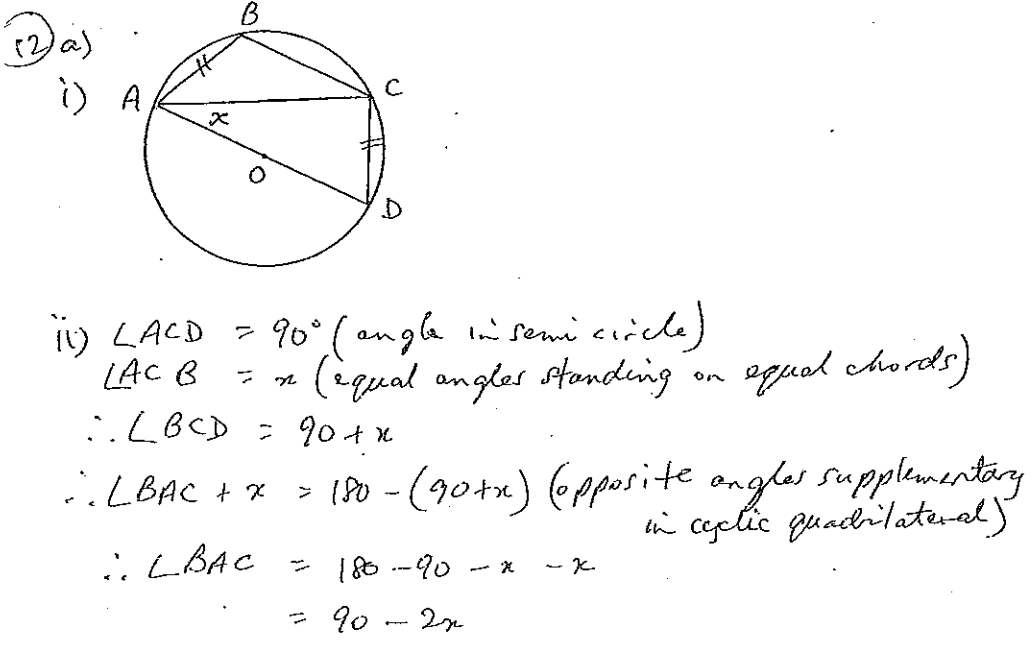 12 a)
i)
B
A
C
x
O
D
ii) ∠ACD = 90° (angle in semi circle)
∠ACB = x (equal angles standing on equal chords)
∴ ∠BCD = 90 + x
∴ ∠BAC + x = 180 - (90 + x) (opposite angles supplementary
in cyclic quadrilateral)
∴ ∠BAC = 180 - 90 - x - x
= 90 - 2x